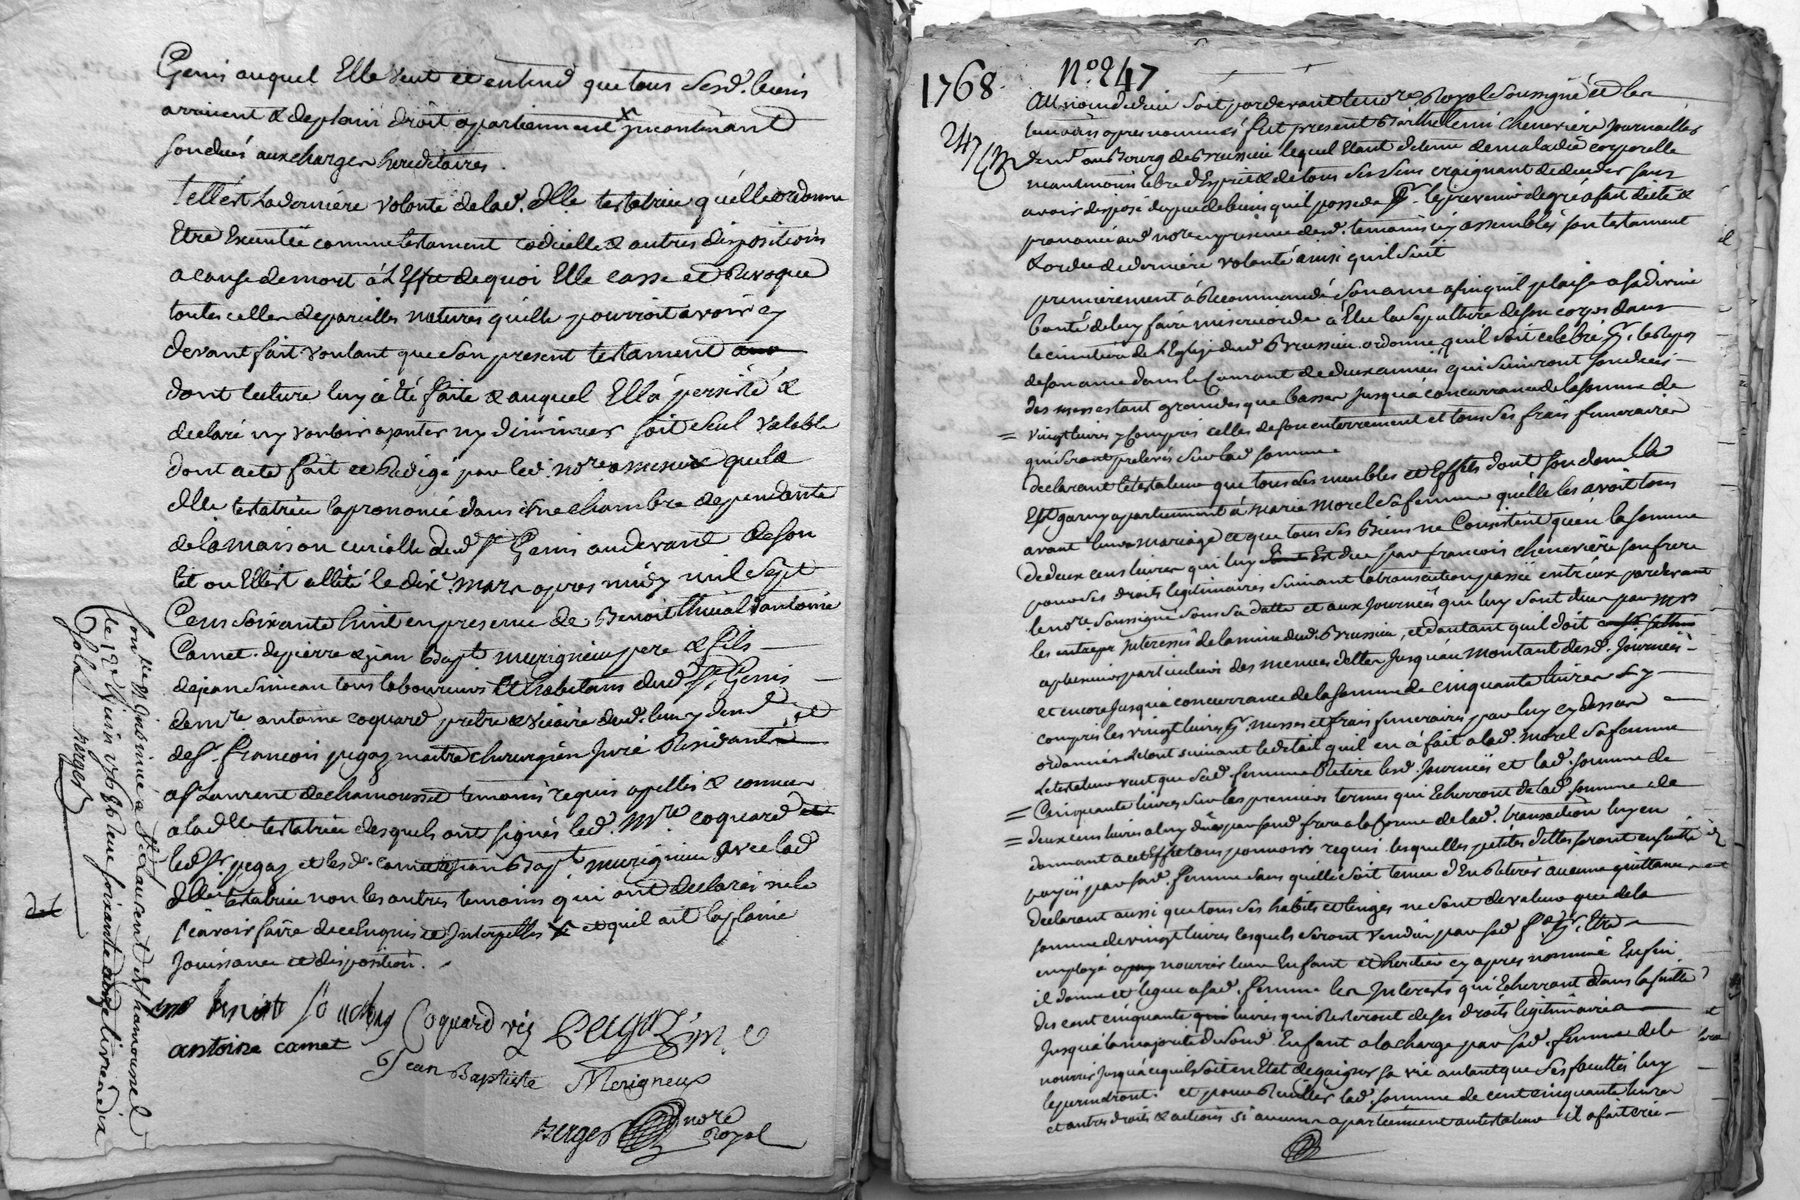 Genis auquel Elle veut et entend que tous sesd. biens
arrivent & de plain droit apartiennent incontinant
son decés aux charges hereditaires.
Telle est la derniere volonté de lad. dlle. testatrice qu'elle ordonne
Etre Executée comme testament codicille & autres dispositions
a cause de mort à l'Effet de quoi Elle casse et Revoque
toutes celles de pareilles natures qu'elle pourroit avoir cy
devant fait voulant que son present testament
dont lecture luy à été faite & auquel Ell'a persisté &
declaré n'y vouloir ajouter ny diminuer soit seul valable
dont acte fait et Redigé par led. nore. a mesure que la
dlle testatrice la prononcé dans une chambre dependante
de la maison curialle dud. St. Genis au devant de son
lit ou Elle est allitée le dix mars apres midy mil sept
Cens soixante huit en presence de Benoit antoine
Camet. de pierre & jean Bapt. murigneux pere & fils
de jean simean tous laboureurs et habitans dud. St. Genis
de mre antoine coquard pretre & vicaire dud. lieu y dem.t et
de sr. françois pegaz maitre chirurgien juré Residant
a St Laurent de chamousset temoins requis apellés & connus
a lad. dlle testatrice desquels ont signés led. Mre coquard
led. sr. pegaz et lesd. camet jean Bapt. murigneux avec lad.
dlle testatrice non les autres temoins qui ont declarés ne le
sçavoir faire de ce Enquis et Interpellés et qu'il ait la plaine
jouissance et disposition.
Coquard vic
antoine camet
Jean Baptiste Merigneux
Berger nore Royal
Con.lle & insinué a St Laurent de chamousset
le 12e juin 1768 Reçu soixante douze livres dix
sols Berger
1768
N° 247
247
Au nom de dieu soit pardevant le nore. Royal soussigné et les
temoins apres nommés fut present Barthelemi chenevière journallier
dem.t au Bourg de Brussieu lequel Etant detenu de maladie corporelle
neantmoins libre d'Esprit & de tous ses sens craignant de deceder sans
avoir disposé du peu de biens qu'il possede pr. le prevenir de gré a fait dicté &
prononcé aud. nore en presence desd. temoins icy assemblés son testament
& ordce. de derniere volonté ainsi qu'il suit
premierement à Recommandé son ame afin qu'il plaise a sa divine
bonté de luy faire misericorde à Elu la sepulture de son corps dans
le cimetiere de l'Eglise dud. Brussieu ordonne qu'il soit celebré pr. le Repos
de son ame dans le courant de deux années qui suivront son deces
des messes tant grandes que basses jusqu'a concurrance de la somme de
vingt livres y compris celles de son enterrement et tous ses frais funeraires
qui seront prelevés sur lad. somme
declarant le testateur que tous les meubles et Effets dont son domlle
Est garny apartiennent à marie morel sa femme qu'elle les avoit tous
avant leur mariage et que tous ses Biens ne Consistent qu'en la somme
de deux cens livres qui luy Est due par françois chenevière son frere
pour ses droits legitimaires suivant la transaction passée entr'eux pardevant
le nore. soussigné sous sa datte et aux journées qui luy sont dues par mrs
les entrepr. Interessés de la mine dud. Brussieu, et d'autant qu'il doit
a plusieurs particuliers des menues dettes jusqu'au montant desd. journées
et encore jusqu'a concurrance de la somme de cinquante livres y
compris les vingt livres pr. messes et frais funeraires par luy cy dessus
ordonnés le tout suivant le detail qu'il en à fait a lad. morel sa femme
Le testateur veut que sad. femme Retire lesd. journées et lad. somme de
Cinquante livres sur les premiers termes qui Echerront de lad. somme de
deux cens livres a luy düe par sond. frere a la forme de lad. transaction luy en
donnant a cet Effet tous pouvoirs requis lesquelles petites dettes seront ensuitte
payées par sad. femme sans quelle soit tenue d'En Retirer aucune quittance
declarant aussi que tous ses habits et linges ne sont de valeur que de la
somme de vingt livres lesquels seront vendus par sad. fe. pr. Etre
employé a nourrir leur Enfant et heritier cy apres nommé Enfin
il donne et legue a sad. femme les Interets qui Echerront dans la suitte
des cent cinquante livres qui Resteront de ses droits legitimaires
jusqu'a la majorité de sond. Enfant a la charge par sad. femme de le
nourrir jusqu'a ce qu'il soit en Etat de gaigner sa vie autant que ses facultés luy
le permettront. et pour Recüeillir lad. somme de cent cinquante livres
et autres droits & actions si aucuns apartiennent au testateur il a fait crée